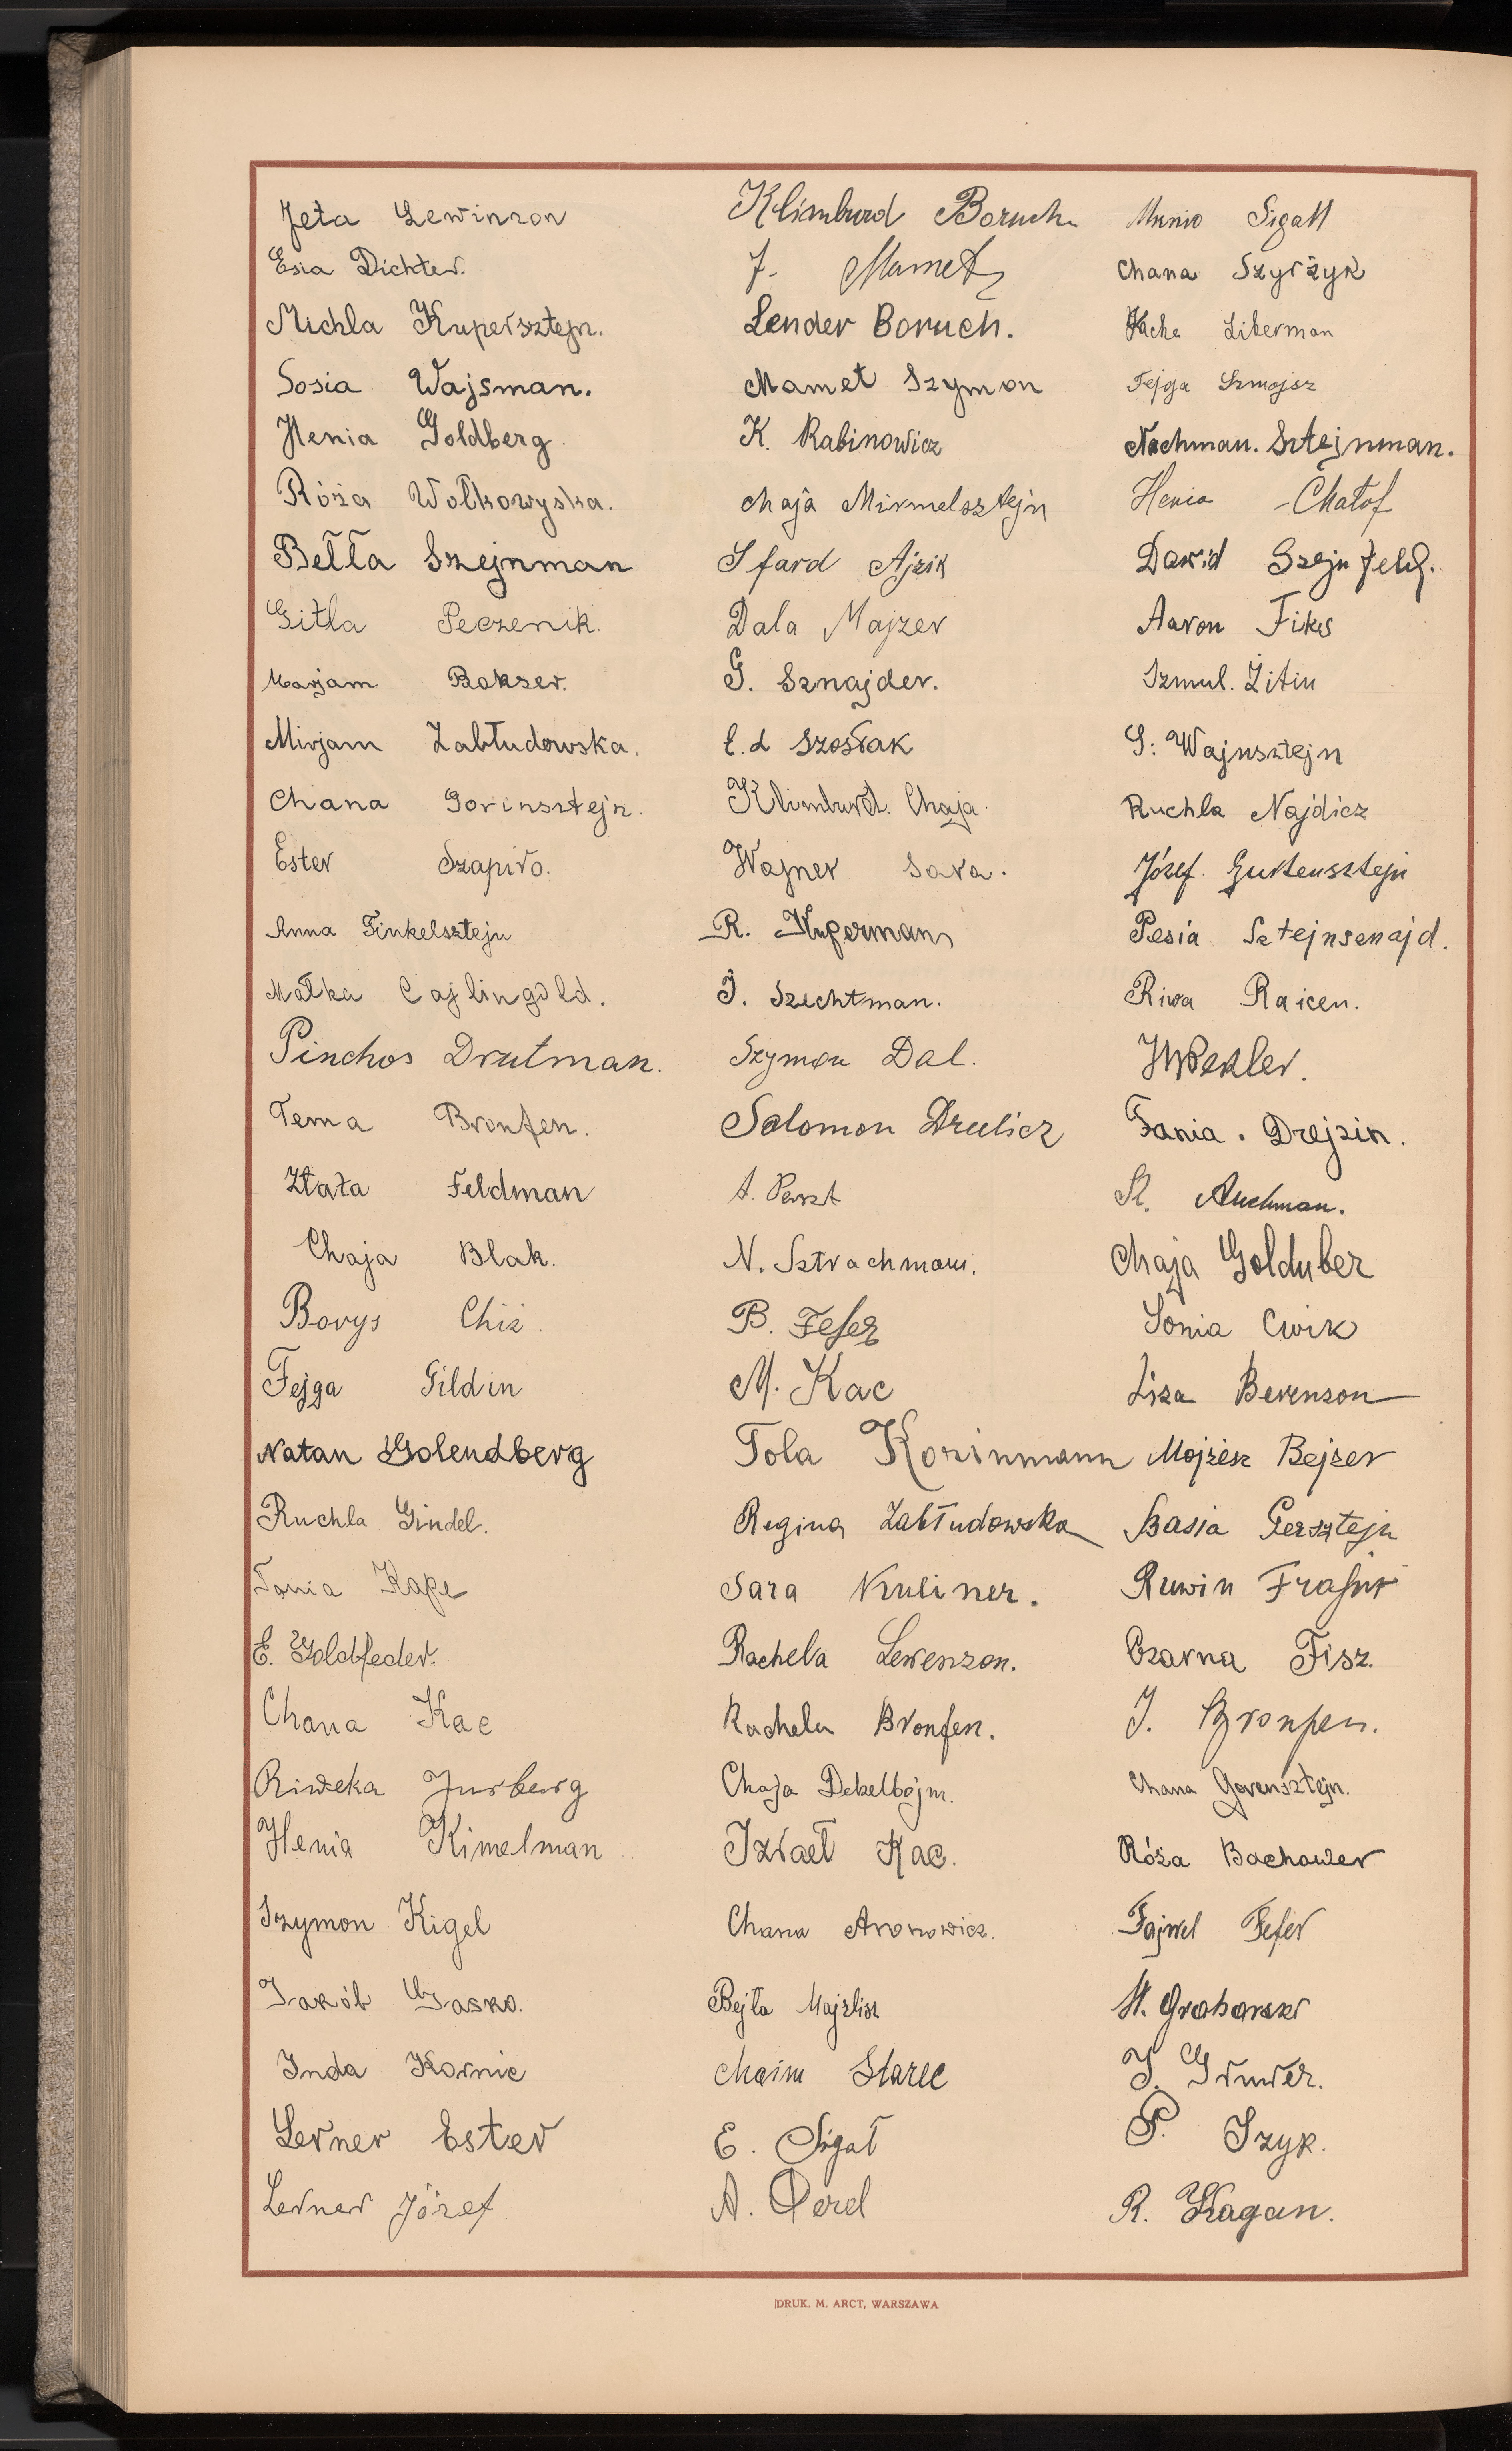 Jeta Lewinson
Esia Dichter.
Michla Kupersztejn.
Sosia Wajsman.
Henia Goldberg.
Róża Wołkowyska.
Bełła Szejnman
Gitla Peczenik.
Marjam Bokser.
Mirjam Zabłudowska.
Chana Gorinsztejn.
Ester Szapiro.
Anna Finkelsztejn
Małka Cajlingold.
Pinchos Drutman.
Tema Bronfen.
Złata Feldman
Chaja Blak.
Borys Chiż.
Fejga Gildin
Natan Golendberg
Ruchla Gindel.
Tania Kape
E. Goldfeder.
Chana Kac
Riweka Jurberg
Henia Kimelman
Szymon Kigel
Jakób Gasko.
Inda Kornic
Lerner Ester
Lerner Józef
Klimburd Boruch
J. Mamet
Lender Boruch.
Mamet Szymon
K. Rabinowicz
Chaja Mirmelsztejn
Sfard Ajzik
Dala Majzer
G. Sznajder.
Szostak
Klimburd. Chaja.
Wajner Sara.
R. Kuperman
J. Szechtman.
Szymon Dal.
Salomon Drulicz
A. Perszt
N. Sztrachman.
B. Fefer
M. Kac
Tola Korinmann
Regina Zabłudowska
Sara Kuliner.
Rachela Lewenzon.
Rachela Bronfen.
Chaja Dekelbojm.
Izrael Kac.
Chana Aronowicz.
Bejła Majzlisz
Chaim Starec
E. Sigał
A. Perel
Munio Sigall
Chana Szyrżyk
Liberman
Fejga Szmojsz
Nachman. Sztejnman.
Henia Chatof
Dawid Szejnfeld.
Aaron Fiks
Szmul. Żitin
S. Wajnsztejn
Ruchla Najdicz
Józef Gurtensztejn
Pesia Sztejnsznajd.
Riwa Raicen.
Weksler.
Fania. Drejzin.
Auchman.
Chaja Golduber
Sonia Cwik
Liza Berenson
Mojżesz Bejzer
Basia Gersztejn
Ruwin
Czarna Fisz.
J. Bronfen.
Chana Gorensztejn.
Róża Bachower
Fajwel Fefer
J. Gruwer.
P. Szyk.
R. Kagan.
DRUK. M. ARCT, WARSZAWA